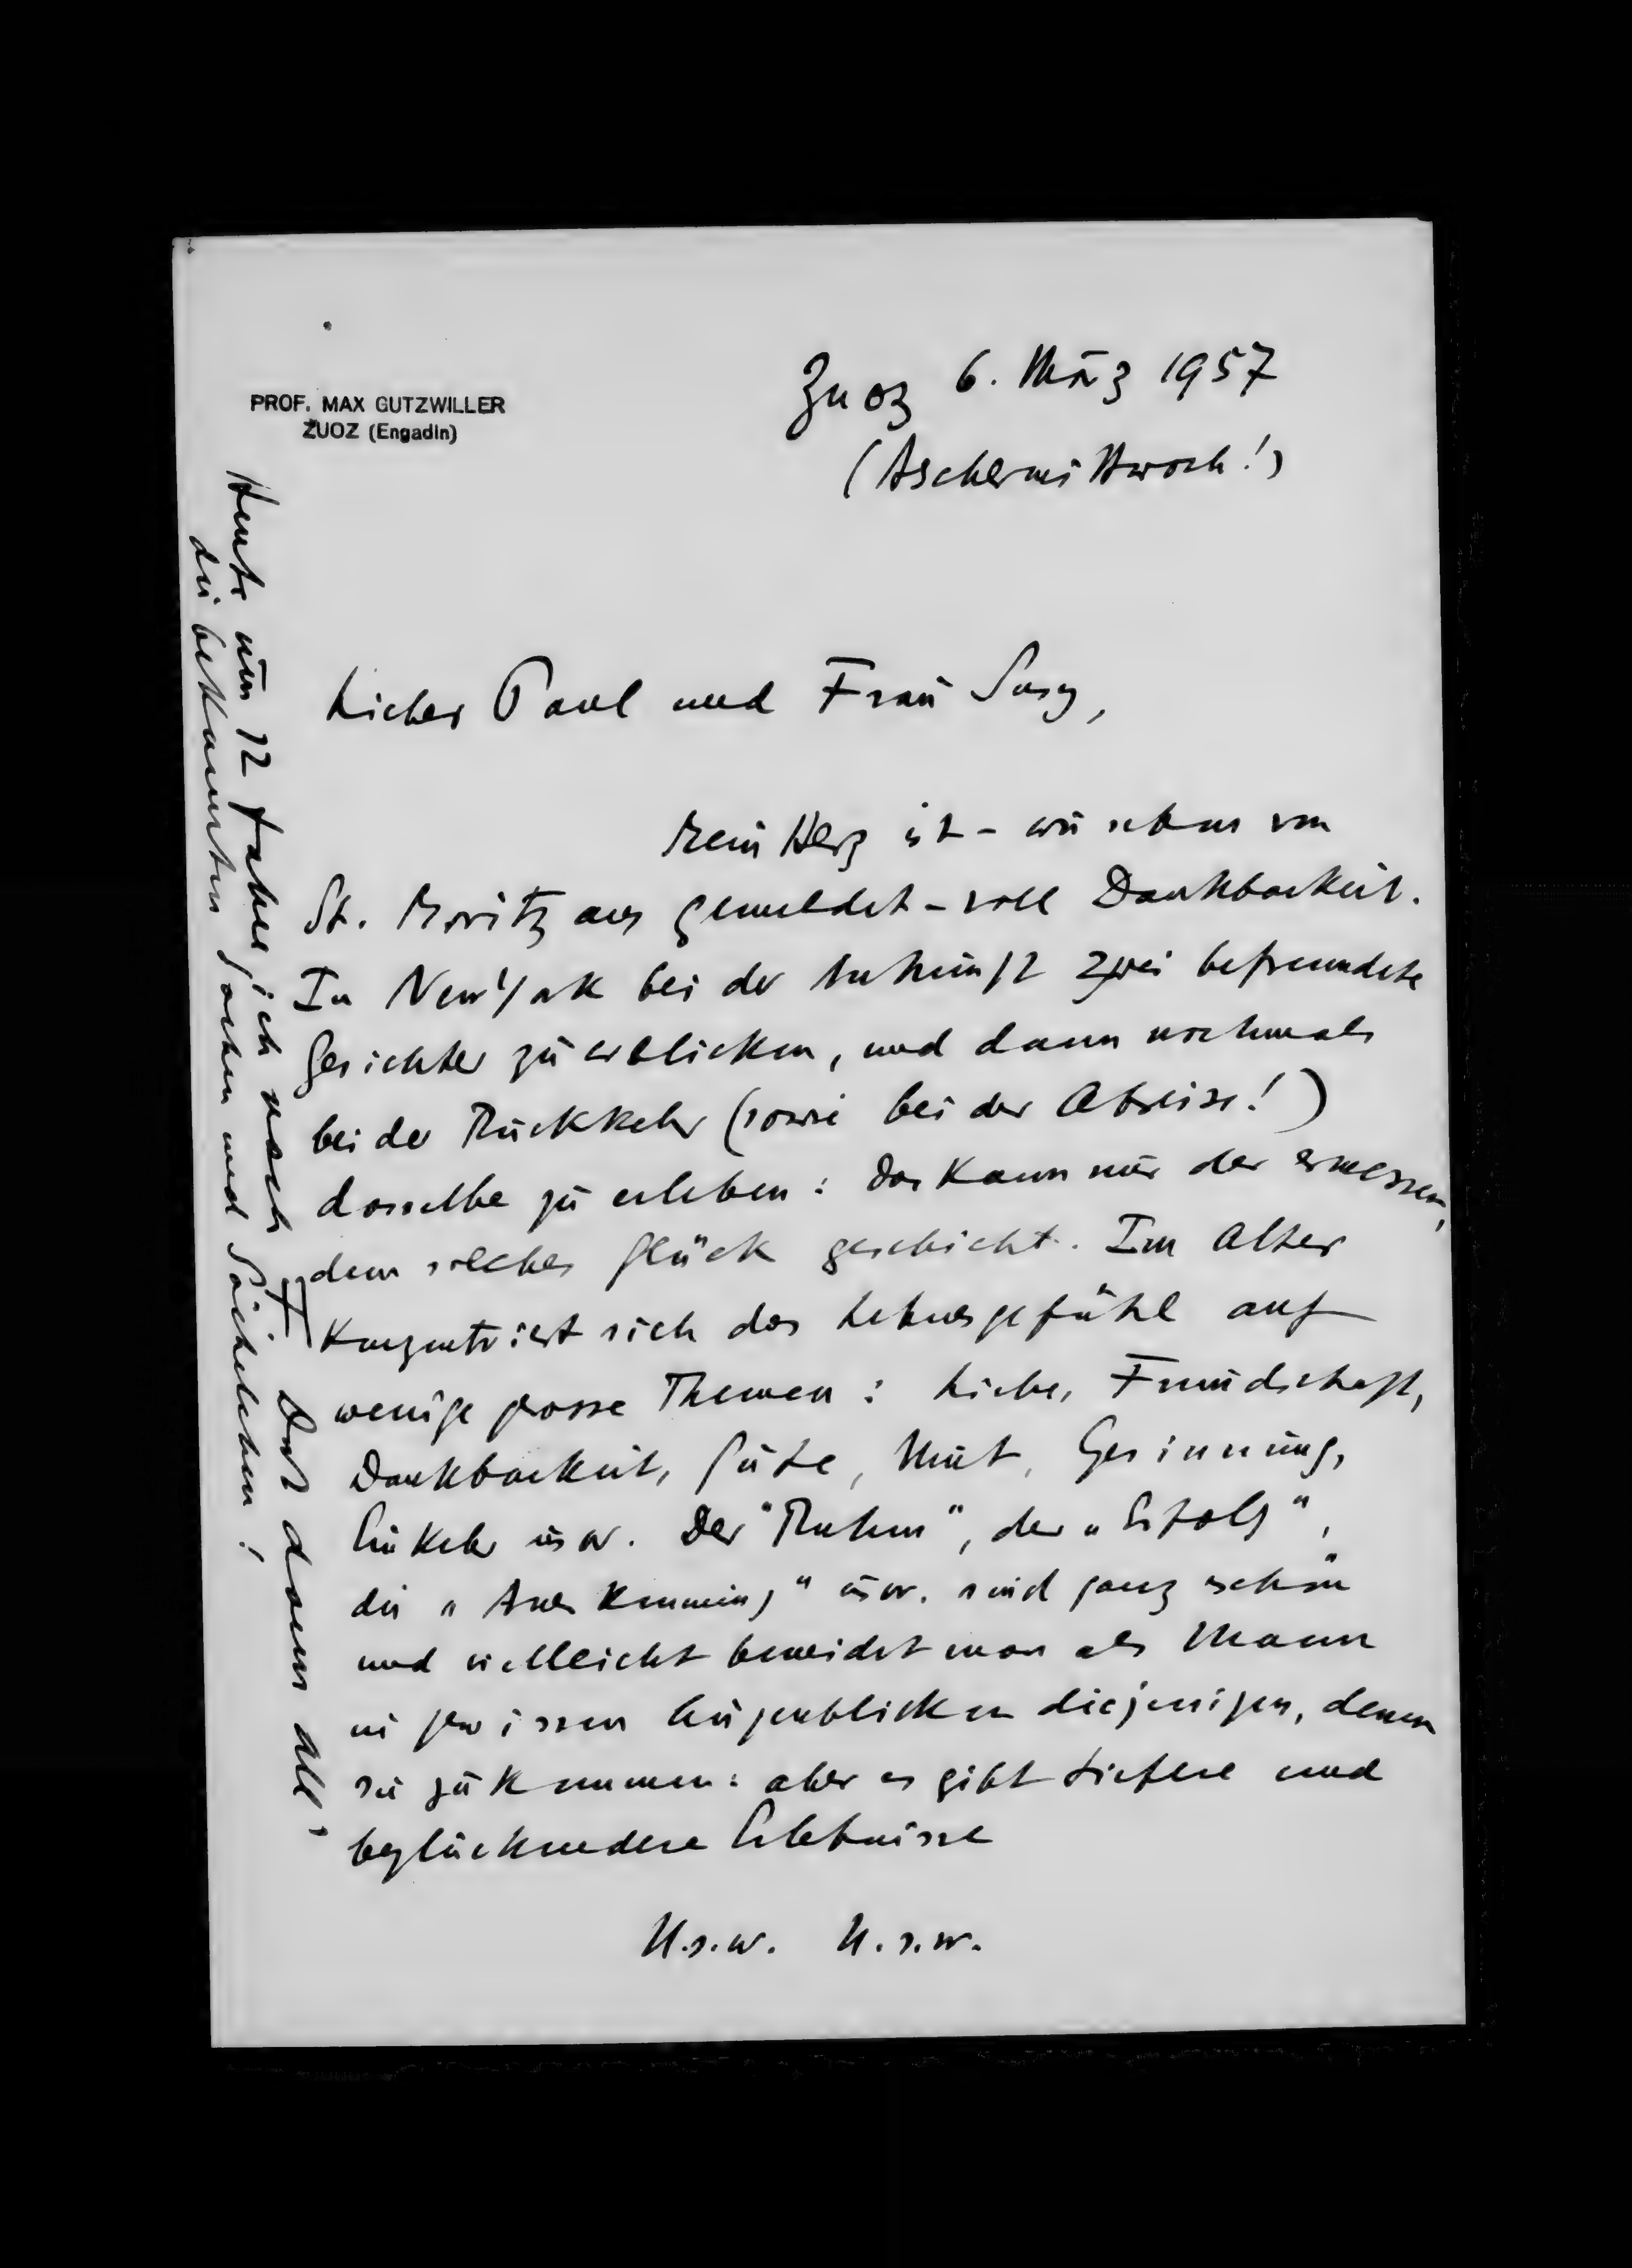 PROF. MAX GUTZWILLER
ZUOZ (Engadin)
Zuoz 6. März 1957
(Aschermittwoch!)
Lieber Paul und Frau Susy,
Mein Herz ist - wie schon von
St. Moritz aus gemeldet - voll Dankbarkeit.
In New York bei der Ankunft zwei befreundete
Gesichter zu erblicken, und dann nochmals
bei der Rückkehr (sowie bei der Abreise!)
dasselbe zu erleben: das kann nur der ermessen,
dem solches Glück geschieht. Im Alter
konzentriert sich das Lebensgefühl auf
wenige grosse Themen: Liebe, Freundschaft,
Dankbarkeit, Güte, Mut, Gesinnung,
Einkehr usw. Der "Ruhm", der „Erfolg",
die „Anerkennung" usw. sind ganz schön
und vielleicht beneidet man als Mann
in gewissen Augenblicken diejenigen, denen
sie zukommen: aber es gibt tiefere und
beglückendere Erlebnisse
U.s.w. U.s.w.
Heute um 12 fahre ich nach F. Dort dann all'
die bekannten Sachen und Sächelchen!